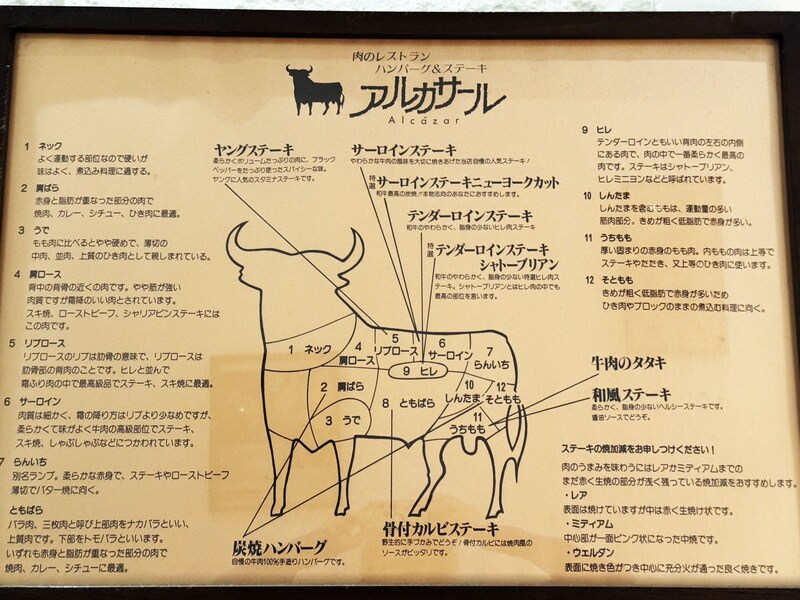 肉のレストラン
ハンバーグ&ステーキ
アルカサール
Alcázar
1 ネック
よく運動する部位なので硬いが
味はよく、煮込み料理に適する。
2 肩ばら
赤身と脂肪が重なった部分の肉で
焼肉、カレー、シチュー、ひき肉に最適。
3 うで
もも肉に比べるとやや硬めで、薄切の
中肉、並肉、上質のひき肉として親しまれている。
4 肩ロース
背中の背骨の近くの肉です。やや筋が強い
肉質ですが霜降のいい肉とされています。
スキ焼、ローストビーフ、シャリアピンステーキには
この肉です。
5 リブロース
リブロースのリブは肋骨の意味で、リブロースは
肋骨部の背肉のことです。ヒレと並んで
霜ふり肉の中で最高級品でステーキ、スキ焼に最適。
6 サーロイン
肉質は細かく、霜の降り方はリブより少なめですが、
柔らかくて味がよく牛肉の高級部位でステーキ、
スキ焼、しゃぶしゃぶなどにつかわれています。
7 らんいち
別名ランプ。柔らかな赤身で、ステーキやローストビーフ
薄切でバター焼に向く。
ともばら
バラ肉、三枚肉と呼び上部肉をナカバラといい、
上質肉です。下部をトモバラといいます。
いずれも赤身と脂肪が重なった部分の肉で
焼肉、カレー、シチューに最適。
ヤングステーキ
柔らかくボリュームたっぷりの肉に、ブラック
ペッパーをたっぷり使ったスパイシーな味。
ヤングに人気のスタミナステーキです。
サーロインステーキ
やわらかな牛肉の風味を大切に焼きあげた当店自慢の人気ステーキ!
特選 サーロインステーキニューヨークカット
和牛最高の炭焼!本物志向のあなたにおすすめします。
テンダーロインステーキ
和牛のやわらかく、脂身の少ないヒレ肉ステーキ
特選 テンダーロインステーキ
シャトーブリアン
和牛のやわらかく、脂身の少ない特選ヒレ肉ス
テーキ。シャトーブリアンとはヒレ肉の中でも
最高の部位を言います。
1 ネック
2 肩ばら
3 うで
4
肩ロース
5
リブロース
6
サーロイン
7
らんいち
8 ともばら
9 ヒレ
10
しんたま
11
うちもも
12
そともも
炭焼ハンバーグ
自慢の牛肉100%手造りハンバーグです。
骨付カルビステーキ
野生的に手づかみでどうぞ!骨付カルビには焼肉風の
ソースがピッタリです。
9 ヒレ
テンダーロインともいい背肉の左右の内側
にある肉で、肉の中で一番柔らかく最高の
肉です。ステーキはシャトーブリアン、
ヒレミニヨンなどと呼ばれています。
10 しんたま
しんたまを含むももは、運動量の多い
筋肉部分。きめが粗く低脂肪で赤身が多い。
11 うちもも
厚い固まりの赤身のもも肉。内ももの肉は上等で
ステーキやたたき、又上等のひき肉に使います。
12 そともも
きめが粗く低脂肪で赤身が多いため
ひき肉やブロックのままの煮込む料理に向く。
牛肉のタタキ
和風ステーキ
柔らかく、脂身の少ないヘルシーステーキです。
醤油ソースでどうぞ。
ステーキの焼加減をお申しつけください!
肉のうまみを味わうにはレアかミディアムまでの
まだ赤く生焼の部分が浅く残っている焼加減をおすすめします。
・レア
表面は焼けていますが中は赤く生焼け状です。
・ミディアム
中心部が一面ピンク状になった中焼です。
・ウエルダン
表面に焼き色がつき中心に充分火が通った良く焼きです。